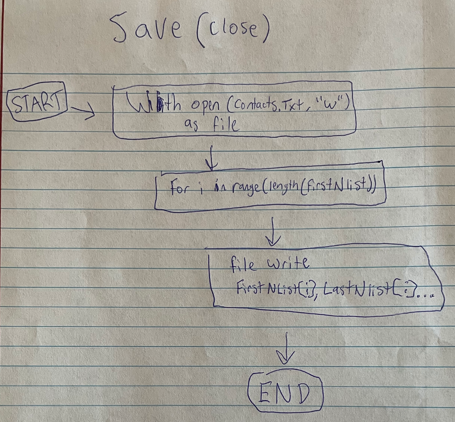 Save (close)
START
With open (Contacts.Txt, "w")
as file
For i in range(length(firstNlist))
file write
FirstNList[i], LastNlist[i]...
END